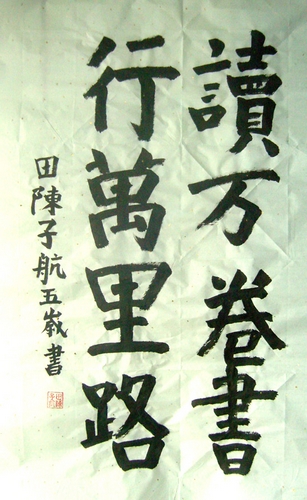 讀万卷書
行萬里路
田陳子航五歲書